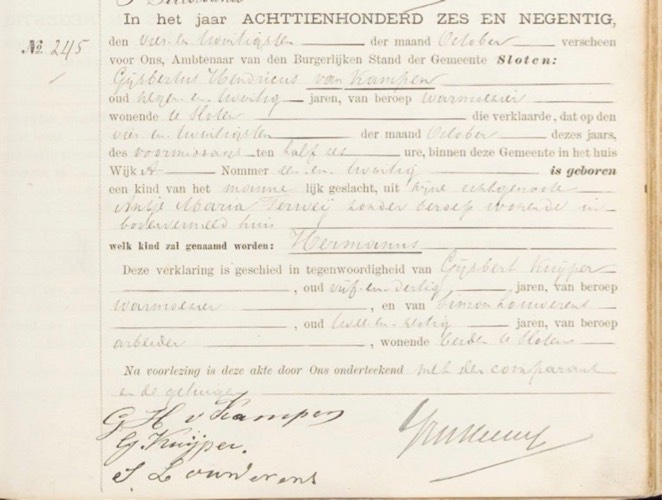 In het jaar ACHTTIENHONDERD ZES EN NEGENTIG,
No. 245
den vier en twintigsten der maand October verscheen
voor Ons, Ambtenaar van den Burgerlijken Stand der Gemeente Sloten:
Gijsbertus Hendricus van Kampen
oud negen en twintig jaren, van beroep warmoezier
wonende te Sloten die verklaarde, dat op den
vier en twintigsten der maand October dezes jaars,
des voormiddags ten half zes ure, binnen deze Gemeente in het huis
Wijk A Nommer en twintig is geboren
een kind van het manne lijk geslacht, uit zijne echtgenoote
Antje Maria Terweij zonder beroep wonende in
bovenvermeld huis
welk kind zal genaamd worden: Hermanus
Deze verklaring is geschied in tegenwoordigheid van Gijsbert Kuijper
, oud vijf en dertig jaren, van beroep
warmoezier , en van Simon Louwerens
, oud twee en zestig jaren, van beroep
arbeider , wonende beiden te Sloten
Na voorlezing is deze akte door Ons onderteekend met den comparant
en de getuigen
G H v Kampen
G. Kuijper.
S. Louwerens